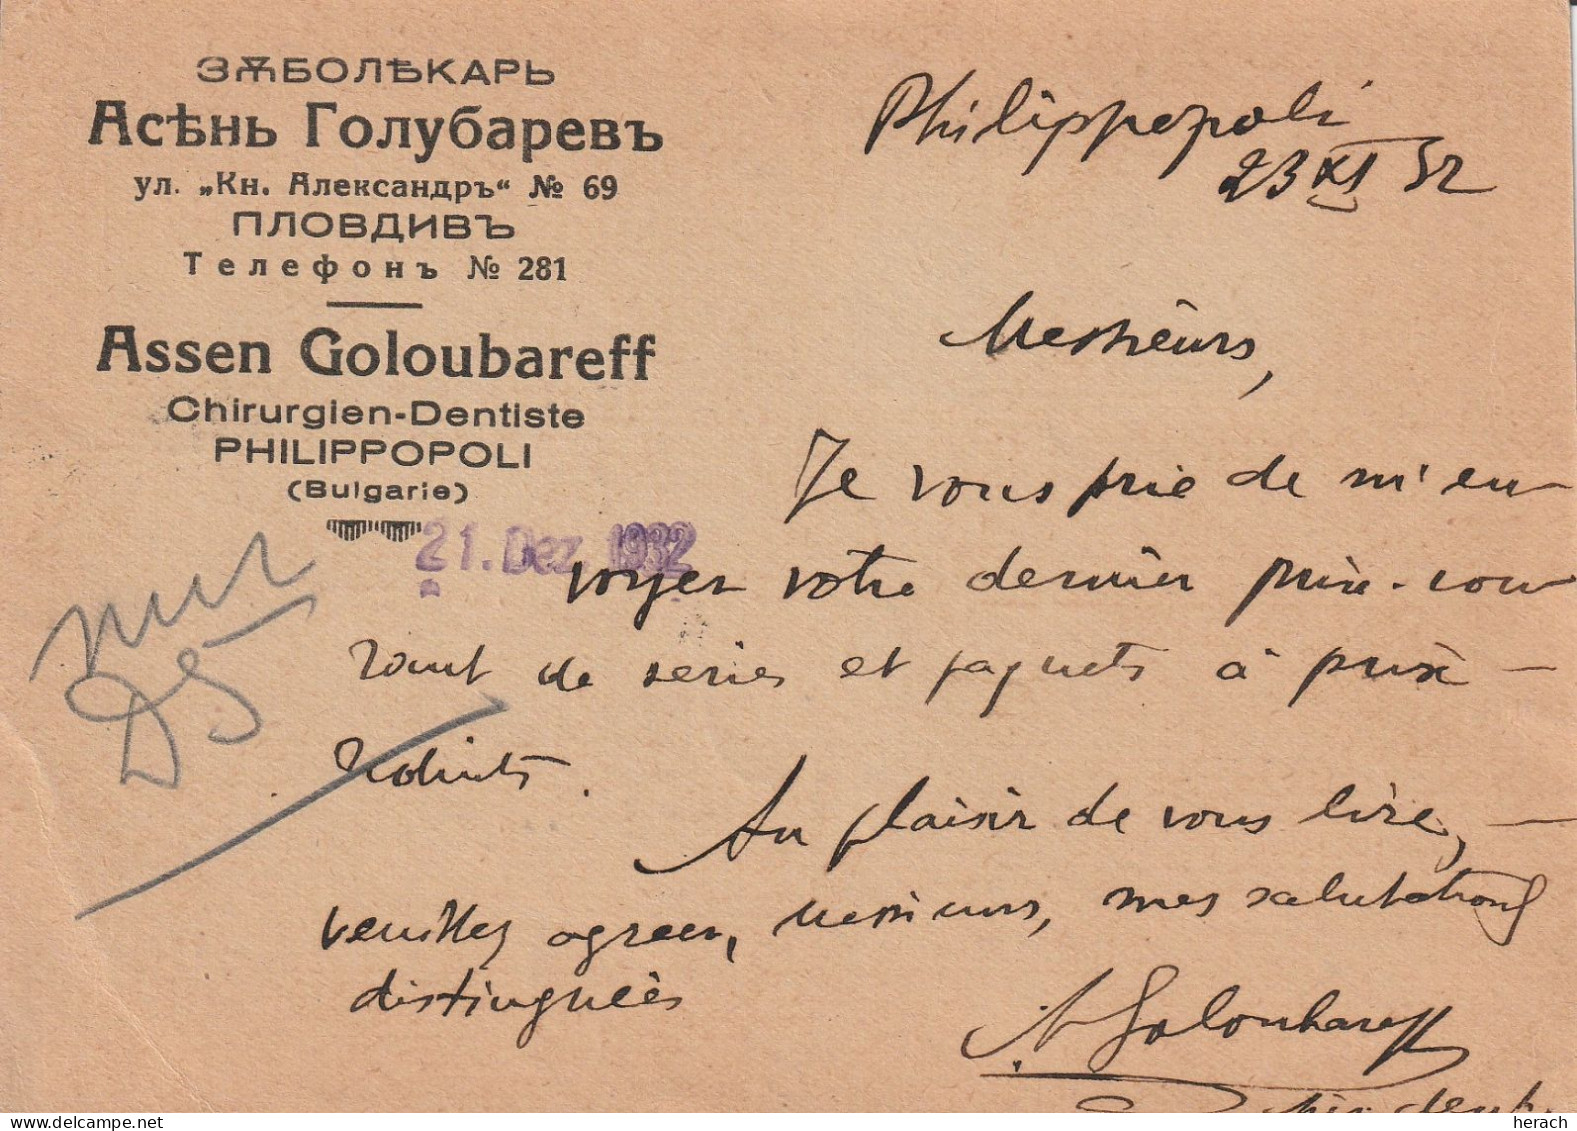 ЗѪБОЛѢКАРЬ
Асѣнь Голубаревъ
ул. „Кн. Александръ“ № 69
ПЛОВДИВЪ
Телефонъ № 281
Assen Goloubareff
Chirurgien-Dentiste
PHILIPPOPOLI
(Bulgarie)
21. Dez. 1932
DS
Philippopoli
23 XI 32
Messieurs,
Je vous prie de m'en-
voyer votre dernier prix-cou-
rant de series et paquets à prix
réduits.
Au plaisir de vous lire,
veuillez agreer, messieurs, mes salutations
distinguées
A Goloubareff
delcampe.net
herach